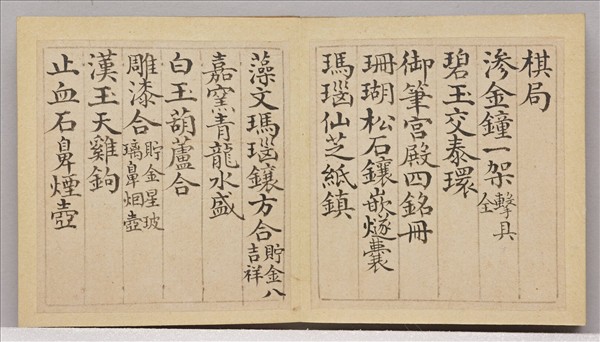 棋局
渗金鐘一架擊具全
碧玉交泰環
御筆宮殿四銘冊
珊瑚松石鑲嵌燧囊
瑪瑙仙芝紙鎮
藻文瑪瑙鑲方合貯金八吉祥
嘉窯青龍水盛
白玉葫蘆合
雕漆合貯金星玻璃鼻烟壺
漢玉天雞鉤
止血石鼻煙壺